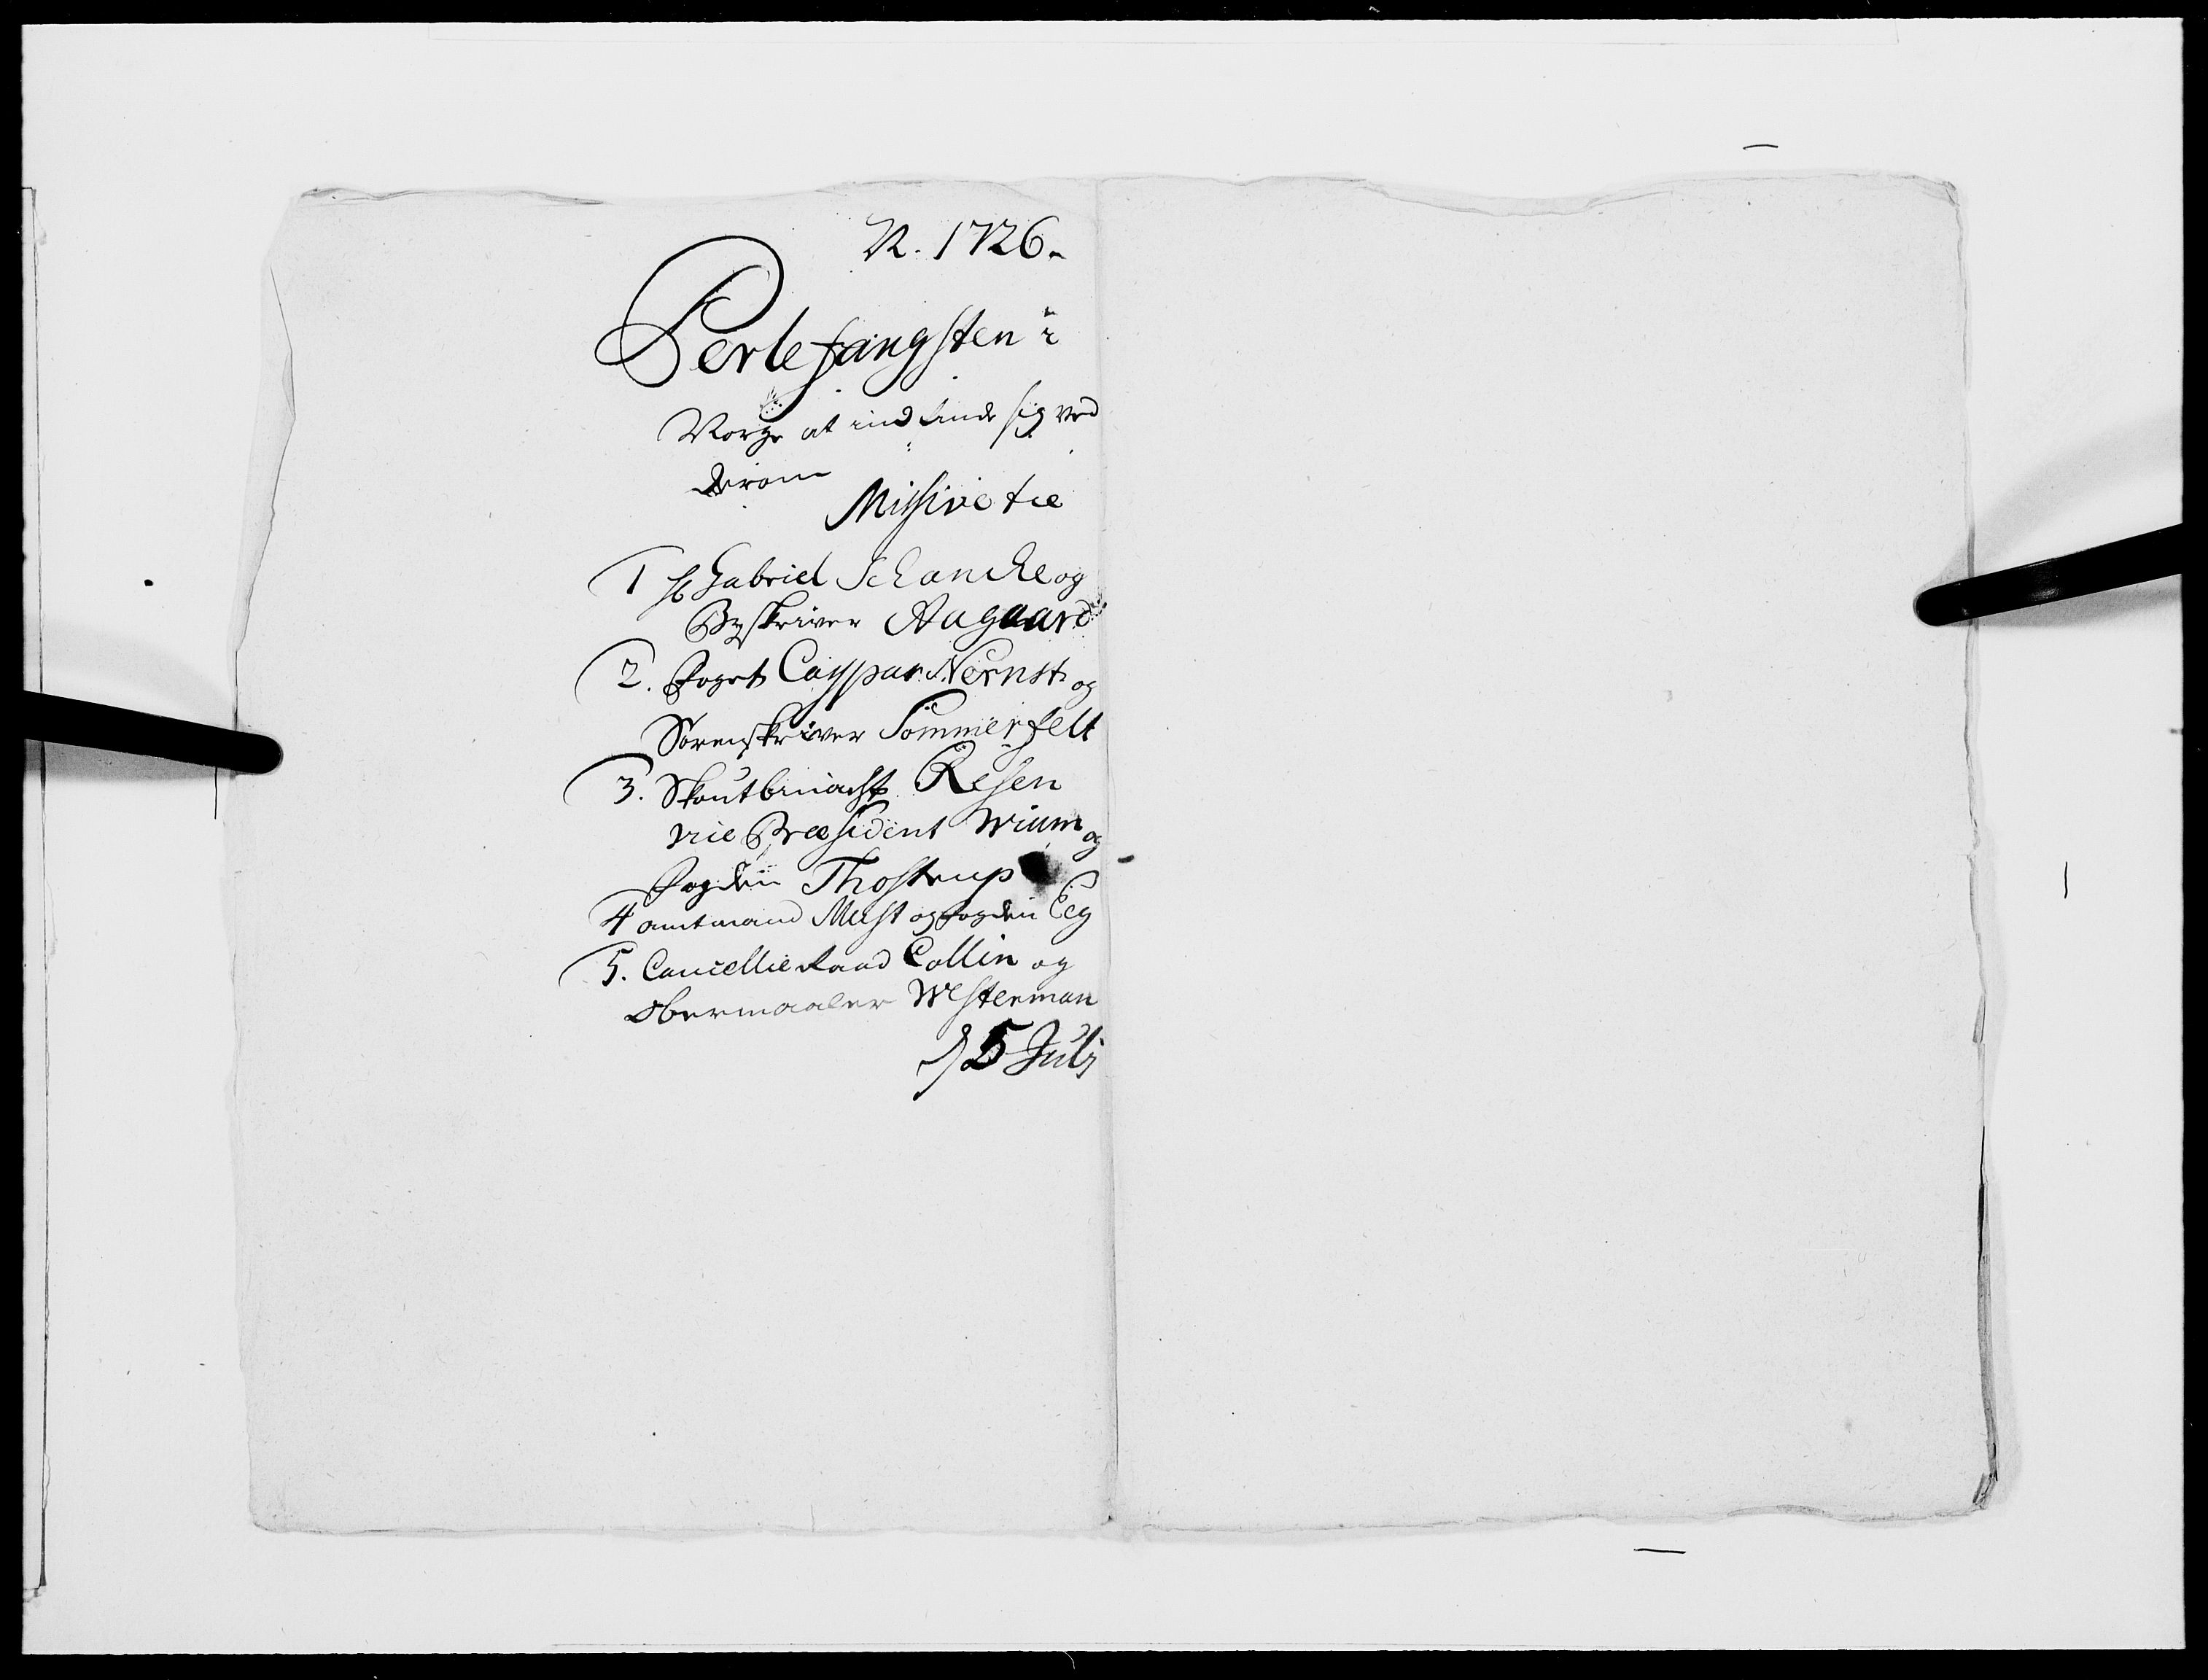 N. 1726.
Perlefangsten i
Norge at indfinde sig ved
derom
Missive til
1 Hr Gabriel Schancke og
Byskriver Aagaard
2. Foget Casspar Nernst og
Sorenskriver Sommerfelt
3. Skoutbinacht Resen
vice Præsident Wium og
Fogden Thostrup
4 amtmand Must og Fogden Eeg
5. Cancellie Raad Collin og
Obermaaler Westerman
d 5 Julj